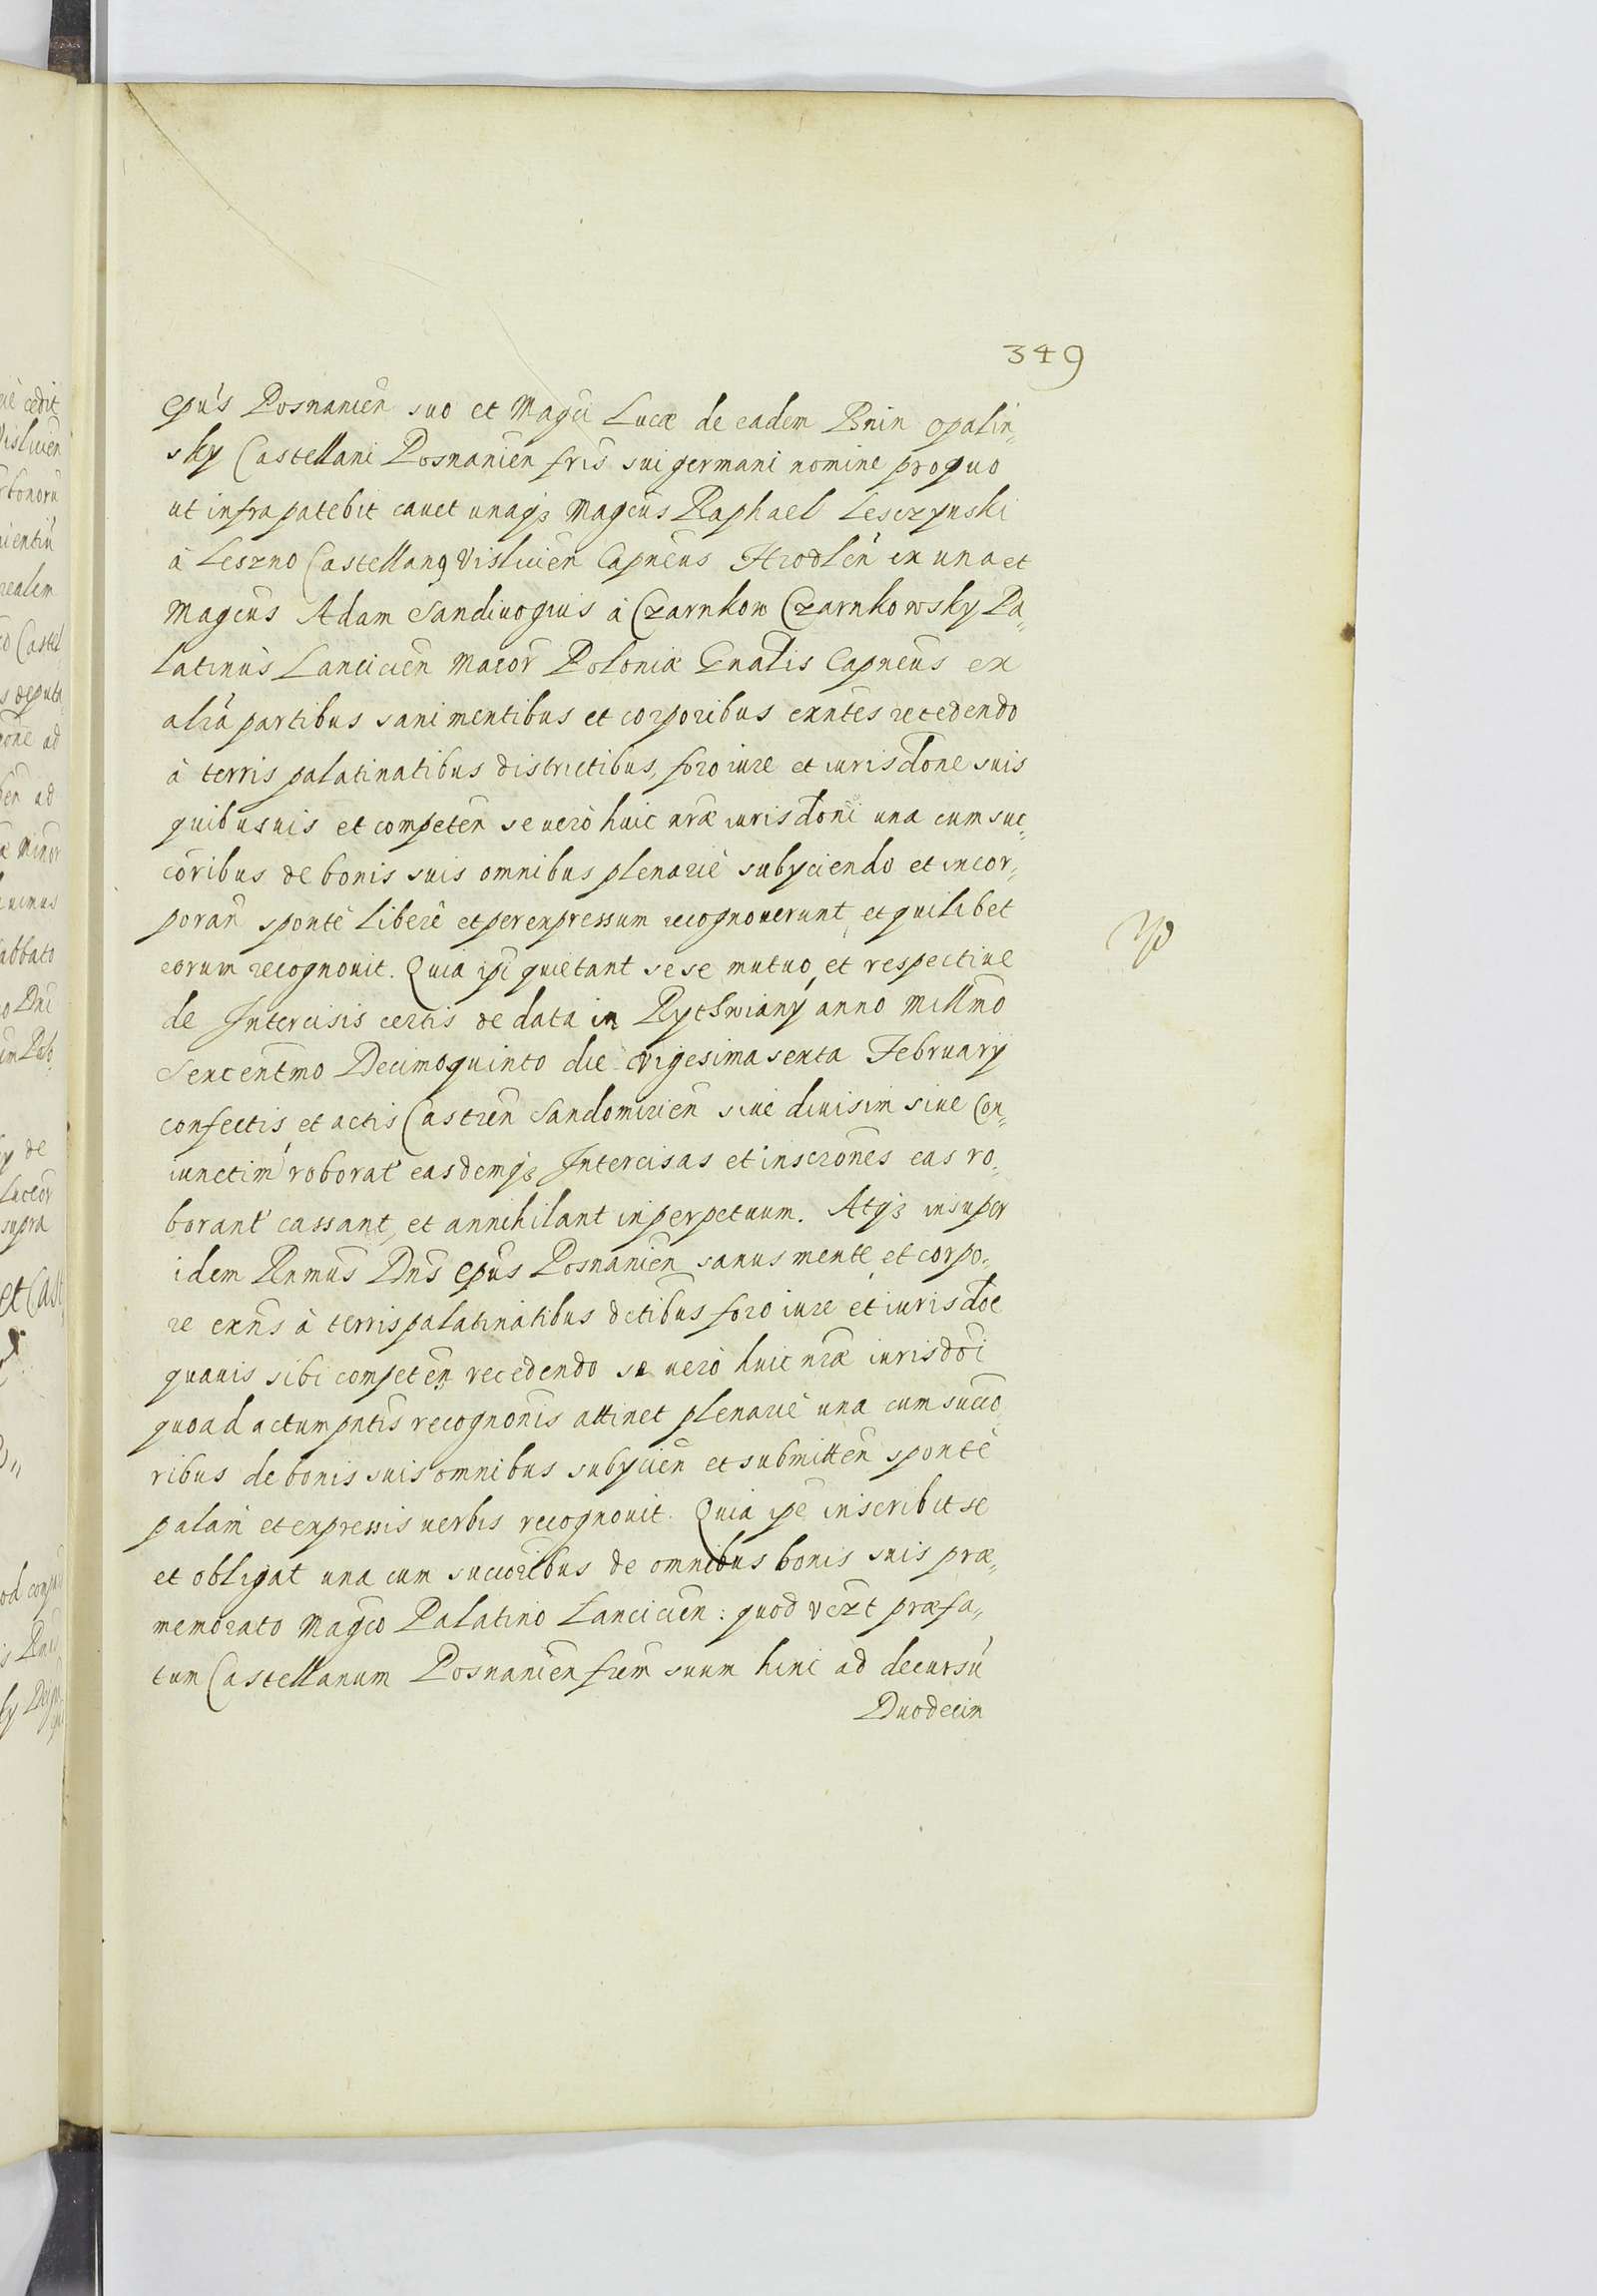 349
Epūs Posnanień suo et Magci Lucæ de eadem Bnin Opalin„
sky Castellani Posnanień fris sui germani nomine pro quo
ut infra patebit cavet unaq̨ Magcus Raphael Lesczynski
à Leszno Castellanus Vislicień Capneus Hrodleń ex una et
Magcus Adam Sandivogius à Czarnkow Czarnkowsky Pa„
latinus Lancicień Maior Poloniæ Gnalis Capneus ex
alia partibus sani mentibus et corporibus exntes recedendo
à terris palatinatibus districtibus, foro iure et iurisdone suis
quibusuis et competeń se uerò huic nræ iurisdoni una cum suc„
coribus de bonis suis omnibus plenariè subyciendo et incor„
porań spontè liberè et per expressum recognouerunt, et quilibet
eorum recognouit. Quia ipi quietant sese mutuo, et respectiue
de Intercisis certis de data in Rythwiany anno Millmo
Sexcentmo Decimoquinto die vigesima sexta February
confectis et actis Castreń Sandomirień siuè diuisim siue Con„
iunctim roborat easdemq̨ Intercisas et inscrones eas ro„
borant cassant, et annihilant in perpetuum. Atq̨ insuper
idem Rnmus Dns Epus Posnanień sanus mente, et corpo„
re exns à terris palatinatibus dctibus foro iure et iurisdoe
quauis sibi competeń recedendo se uerò huic nræ iurisdoi
quoad actum pntis recognonis attinet plenariè una cum succo
ribus de bonis suis omnibus subycień et submitteń spontè
palam et expressis uerbis recognouit. Quia ipe inscribit se
et obligat una cum succoribus de omnibus bonis suis præ„
memorato Magco Palatino Lancicień: quod
tum Castellanum Posnanień frem suum hinc ad decursū
Duodecim